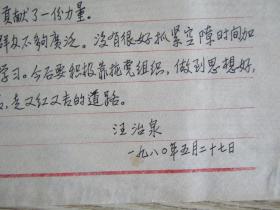 贡献了一份力量。
群众不够广泛。没有很好抓紧空隙时间加
学习。今后要积极靠拢党组织，做到思想好，
走又红又专的道路。
汪治泉
一九八〇年五月二十七日